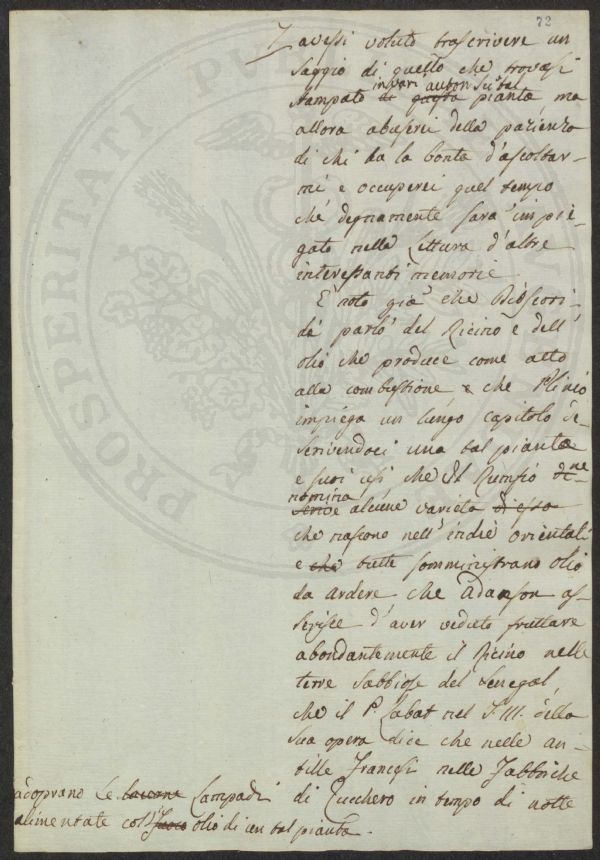 72
I avessi voluto trascrivere un
saggio di quello che trovasi
stampato in vari autori su tal
di questa pianta, ma
allora abuserei della pazienza
di chi ha la bontà d'ascoltar-
mi e occuperei quel tempo
che degnamente sarà impie-
gato nella Lettura d'altre
interessanti memorie.
È noto già che Dioscori-
de parlò del Ricino e dell'
olio che produce come atto
alla combustione e che Plinio
impiega un lungo capitolo de-
scrivendoci una tal pianta
e suoi usi che Il Rumfio ne
nomina
scrive alcune varietà di essa
che nascono nell'indie orientali
e che tutte somministrano olio
da ardere che Adanson as-
serisce d'aver veduto fruttare
abondantemente il Ricino nelle
terre sabbiose del Senegal,
che il P. Labat nel T. III. della
sua opera dice che nelle an-
tille Francesi nelle Fabbriche
di Zucchero in tempo di notte
adoprano le lucerne Lampadi
alimentate coll' olio di un tal pianta.
PROSPERITATI PUBLICAE